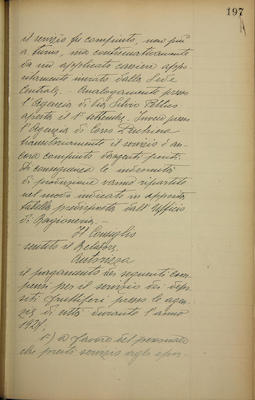 197
il servizio fu compiuto, non più
a turno, ma continuativamente
da un applicato cassiere appo-
sitamente inviato dalla Sede
Centrale. - Analogamente presso
l'Agenzia di Via Silvio Pellico
aperta il 1° settembre. Invece presso
l'Agenzia di Corso
il servizio è an-
cora compiuto
Di conseguenza le indennità
di produzione vanno ripartite
nel modo indicato in apposita
tabella predisposta dall'Ufficio
di Ragioneria. -
Il Consiglio
sentito il Relatore,
Autorizza
il pagamento dei seguenti com-
pensi per il servizio dei depo-
siti fruttiferi presso le agen-
zie di città durante l'anno
1928.
1°) a favore del personale
che prestò servizio agli spor-